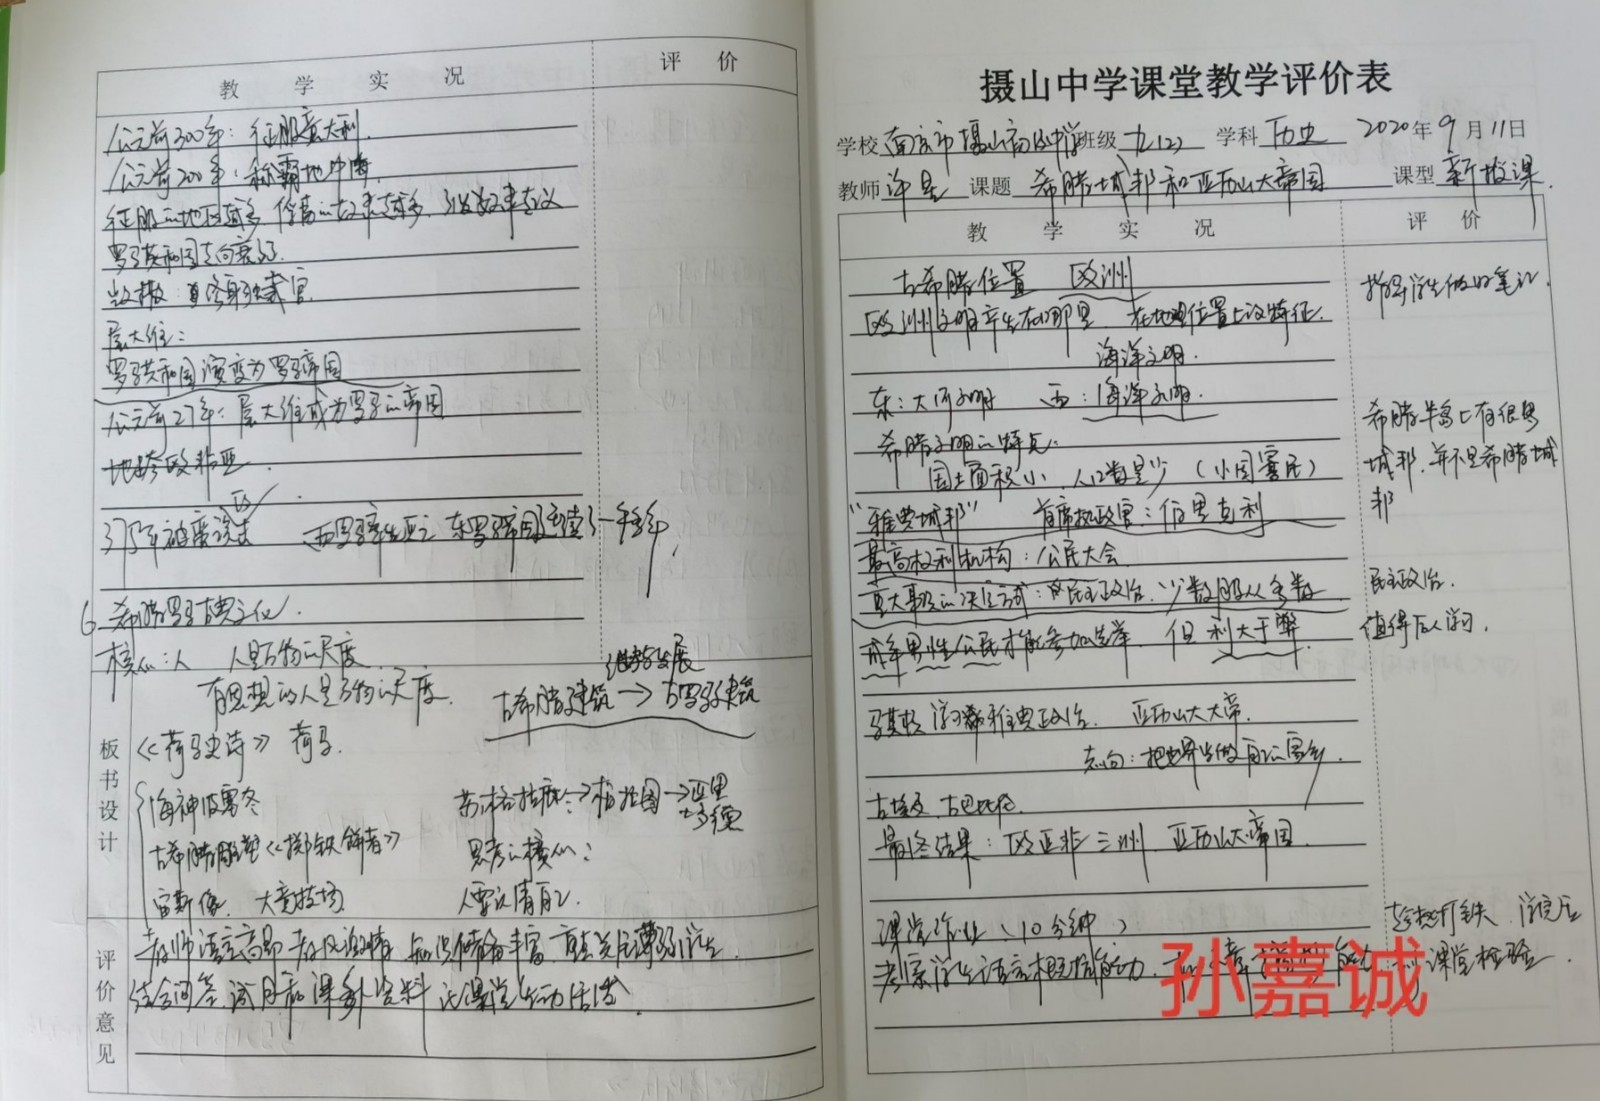 教 学 实 况
评 价
公元前300年：征服意大利.
公元前200年：称霸地中海.
罗马共和国走向衰弱.
屋大维：
罗马共和国演变为罗马帝国
公元前27年：屋大维成为罗马的帝国
地跨欧非亚.
西罗马率先灭亡 东罗马帝国延续了一千多年,
6. 希腊罗马古典文化.
核心：人 人是万物的尺度.
有思想的人是万物的尺度.
继承与发展
古希腊建筑→古罗马建筑
板书设计
《荷马史诗》 荷马.
海神波塞冬
苏格拉底→柏拉图→亚里士多德
古希腊雕塑《掷铁饼者》
思考的核心：
宙斯像. 大竞技场.
人要认清自己.
评价意见
结合问答、试题和课外资料 让课堂生动活泼.
摄山中学课堂教学评价表
学校 南京市摄山初级中学 班级 九(2) 学科 历史 2020年9月11日
教师 许昱 课题 希腊城邦和亚历山大帝国 课型 新授课.
教 学 实 况
评 价
古希腊位置 欧洲
指导学生做好笔记.
欧洲文明产生在哪里. 在地理位置上的特征.
海洋文明.
东：大河文明 西：海洋文明.
希腊文明的特点：
国土面积小、人口数量少（小国寡民）
希腊半岛上有很多城邦, 并不是希腊城邦
“雅典城邦” 首席执政官：伯里克利
最高权利机构：公民大会.
重大事项的决定方式：民主政治. 少数服从多数
民主政治.
成年男性公民才能参加选举. 但利大于弊.
值得后人学习.
马其顿 学习希雅典政治. 亚历山大大帝.
志向：把世界当做自己的家乡.
古埃及 古巴比伦.
最终结果：欧亚非三洲. 亚历山大帝国.
课堂作业（10分钟）
趁热打铁. 学完后
考察学生语言概括能力.
课堂检验.
孙嘉诚